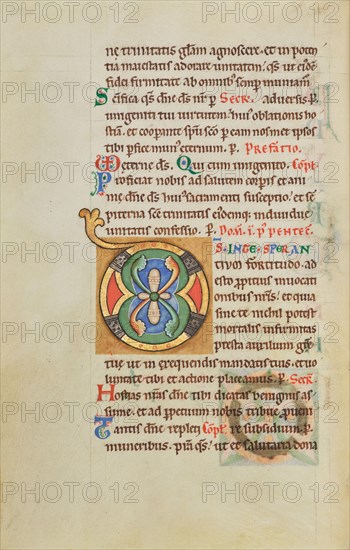 ne trinitatis gl̃am agnoscere. et in poten
tia maiestatis adorare unitatem. q̃s ut ei&dem
fidei firmitate ab omnibus semp muniam.
Scifica q̃s dñe d̃s nr̃ p. Secr̃. adversis p.
unigeniti tui uirtutem. huius oblationis ho
stiã. et coopante sp̃u sc̃o p eam nosmet ipsos
tibi pfice munus eternum. p. Prefatio.
eterne d̃s. Qui cum unigenito. Cõpl.
Proficiat nobis ad salutem corpis et ani
me dñe d̃s huius sacramenti susceptio. et se
piterna sc̃e trinitatis eiusdemque individue
unitatis confessio. p. Dom. I. p. Pentec̃.
D S. IN TE SPERAN
TIVM FORTITVDO. ad
esto propitius invocati
onibus nr̃is. et quia
sine te nichil potest
mortalis infirmitas
presta auxilium gr̃e
tue. ut in exequendis mandatis tuis. et vo
luntate tibi et actione placeamus. p. Secr̃.
Hostias nr̃as dñe tibi dicatas benignus as
sume. et ad profectum nobis tribue puenire
Tantis dñe repleti Cõpl. re subsidium. p.
muneribus. p̃ta. q̃s. ut et salutaria dona
PHOTO 12